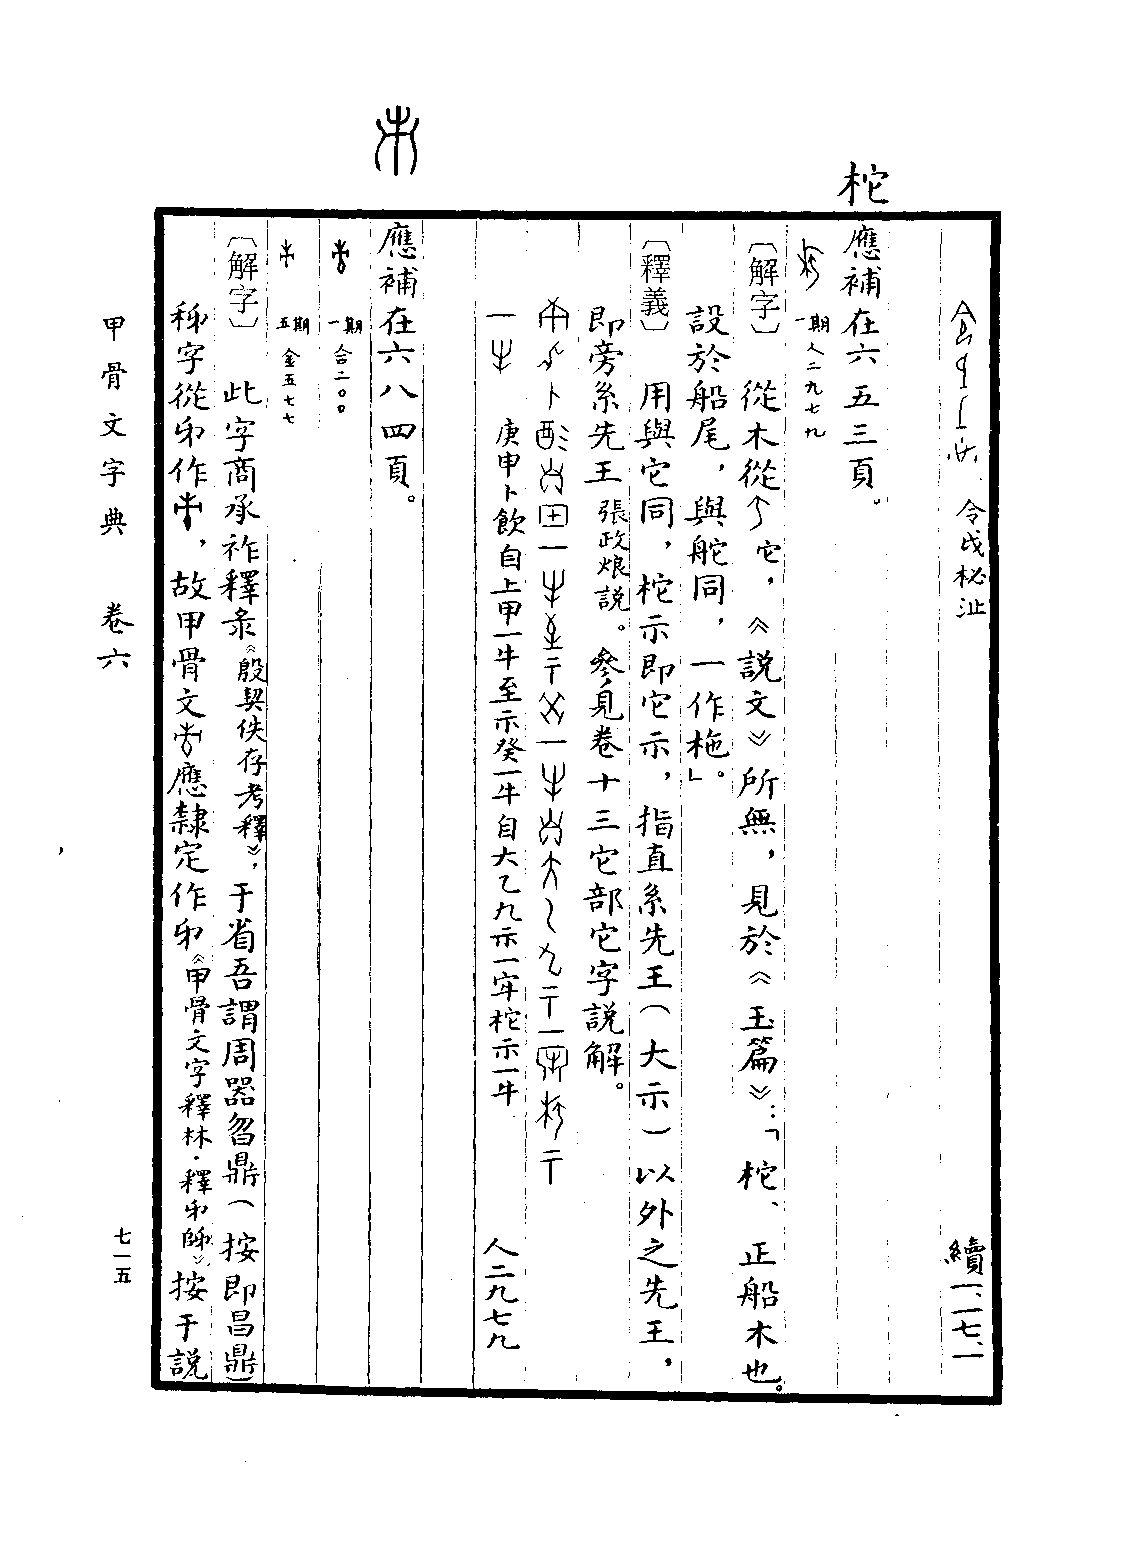 令戉柲沚 續一、一七、一
柁
應補在六五三頁。
一期 人二九七九
〔解字〕 從木從它，《說文》所無，見於《玉篇》：「柁、正船木也。
設於船尾，與舵同，一作柂。」
〔釋義〕 用與它同，柁示即它示，指直系先王（大示）以外之先王，
即旁系先王張政烺說。參見卷十三它部它字說解。
庚申卜飲自上甲一牛至示癸一牛自大乙九示一牢柁示一牛 人二九七九
應補在六八四頁。
一期 合二〇〇
五期 金五七七
〔解字〕 此字商承祚釋彔《殷契佚存考釋》，于省吾謂周器曶鼎（按即昌鼎）
秭字從𠂔作，故甲骨文應隸定作𠂔《甲骨文字釋林·釋𠂔師》按于說
甲骨文字典 卷六
七一五